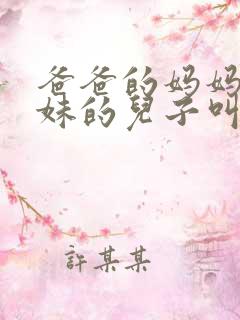 爸爸的妈妈
妹的兒子叫
許某某